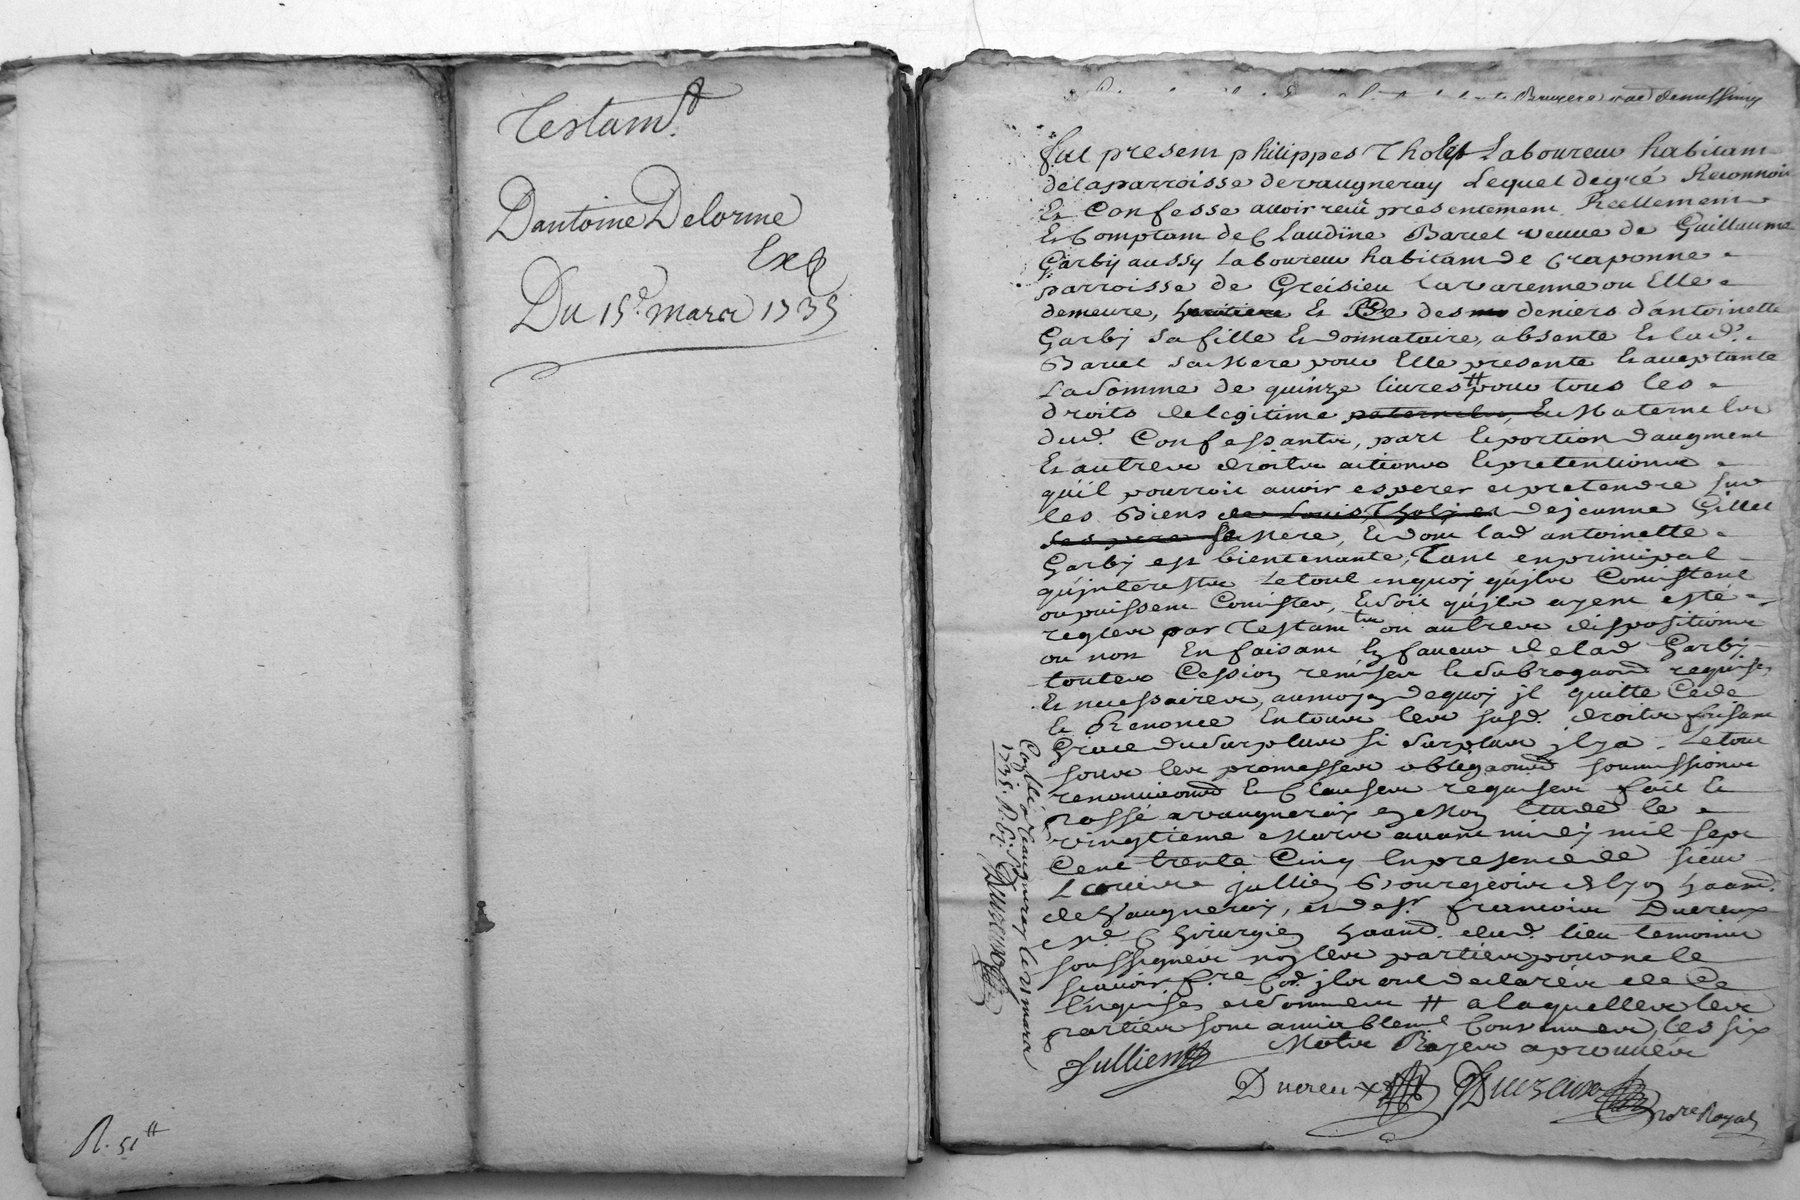 Testam.t
Dantoine Delorme
Exp
Du 15e mars 1735
R. 51 tt
Bruyere
fut present philippes Tholy Laboureur habitant
de la parroisse de vaugneray Lequel de gré Reconnoit
Et Confesse avoir reçu presentement Reellement
Et Comptant de Claudine Barcel veuve de Guillaume
Garby aussy Laboureur habitant de Craponne
parroisse de Greisieu la varenne ou Elle
demeure, heritiere Et Ce des deniers d'antoinette
Garby sa fille Et donnataire, absente Et lad.e
Barcel sa Mere pour Elle presente Et acceptante
La Somme de quinze livres tt pour tous les
droits de legitime paternelle, Et Maternelle
dud. Confessante, part Et portion d'augment
Et autres droits actions Et pretentions
qu'il pourroit avoir esperer et pretendre sur
les Biens de Louis Tholy et de jeanne Gillet
ses pere sa Mere, Et dont lad antoinette
Garby est bientenante, Tant en principal
qu'interests Le tout en quoy qu'ils Consistent
ou puissent Consister, Et soit qu'ils ayent esté
reglés par Testam.ts ou autres dispositions
ou non En faisant En faveur de lad Garby
toutes Cession remises Et subrogaons requises
Et necessaires, au moyen de quoy il quitte Cede
Et Renonce En tous les susd. droits faisant
Grace du surplus si surplus il y a. Le tout
sous les promesses obligaons soumissions
renonciaons Et Clauses requises fait Et
passé a vaugneray En Mon Etude le
vingtieme Mars avant midy mil sept
Cent trente Cinq En presence de sieur
Louis jullien Bourgeois de lyon haant.
de Vaugneray, et de sr. francois Ducreux
Me Chirurgien haant. dud. lieu temoins
soussignés non les parties pour ne le
scavoir f.re Co.e ils ont declaré de ce
Enquises et sommées tt a laquelle les
parties sont amiablemt Convenues, les six
Mots Rayés aprouvés
Jullien
Ducreux
not.re Royal
Conllé a Vaugneray le 21 mars
1735. R. 6s.